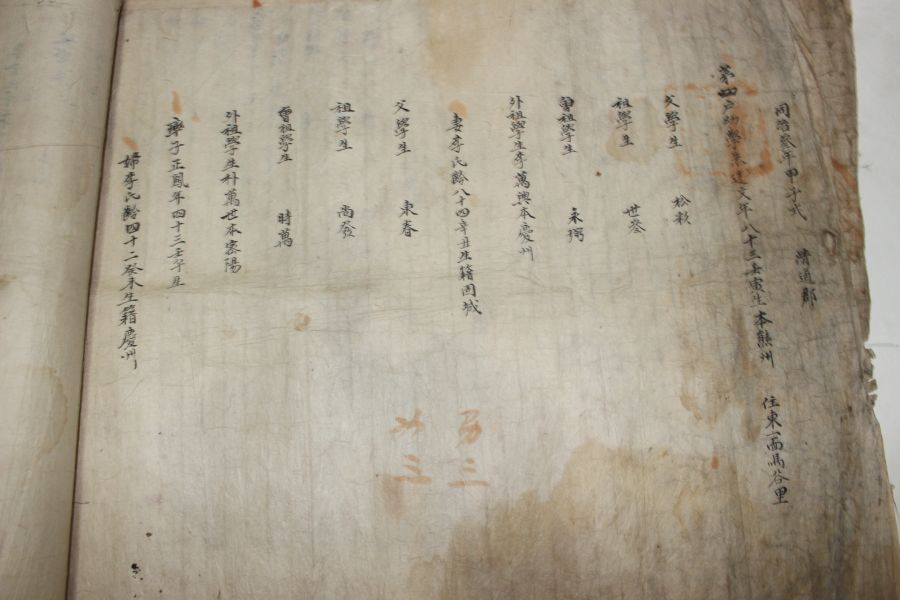 同治叁年甲子式 清道郡 住東一面馬谷里
第四戶幼學朱達文年八十三壬寅生本熊州
父學生 松彩
祖學生 世叄
曾祖學生 永弼
外祖學生李萬興本慶州
妻李氏齡八十四辛丑生籍固城
父學生 東春
祖學生 尚發
曾祖學生 時萬
外祖學生朴萬世本密陽
率子正鳳年四十三壬午生
婦李氏齡四十二癸未生籍慶州
男三
女三